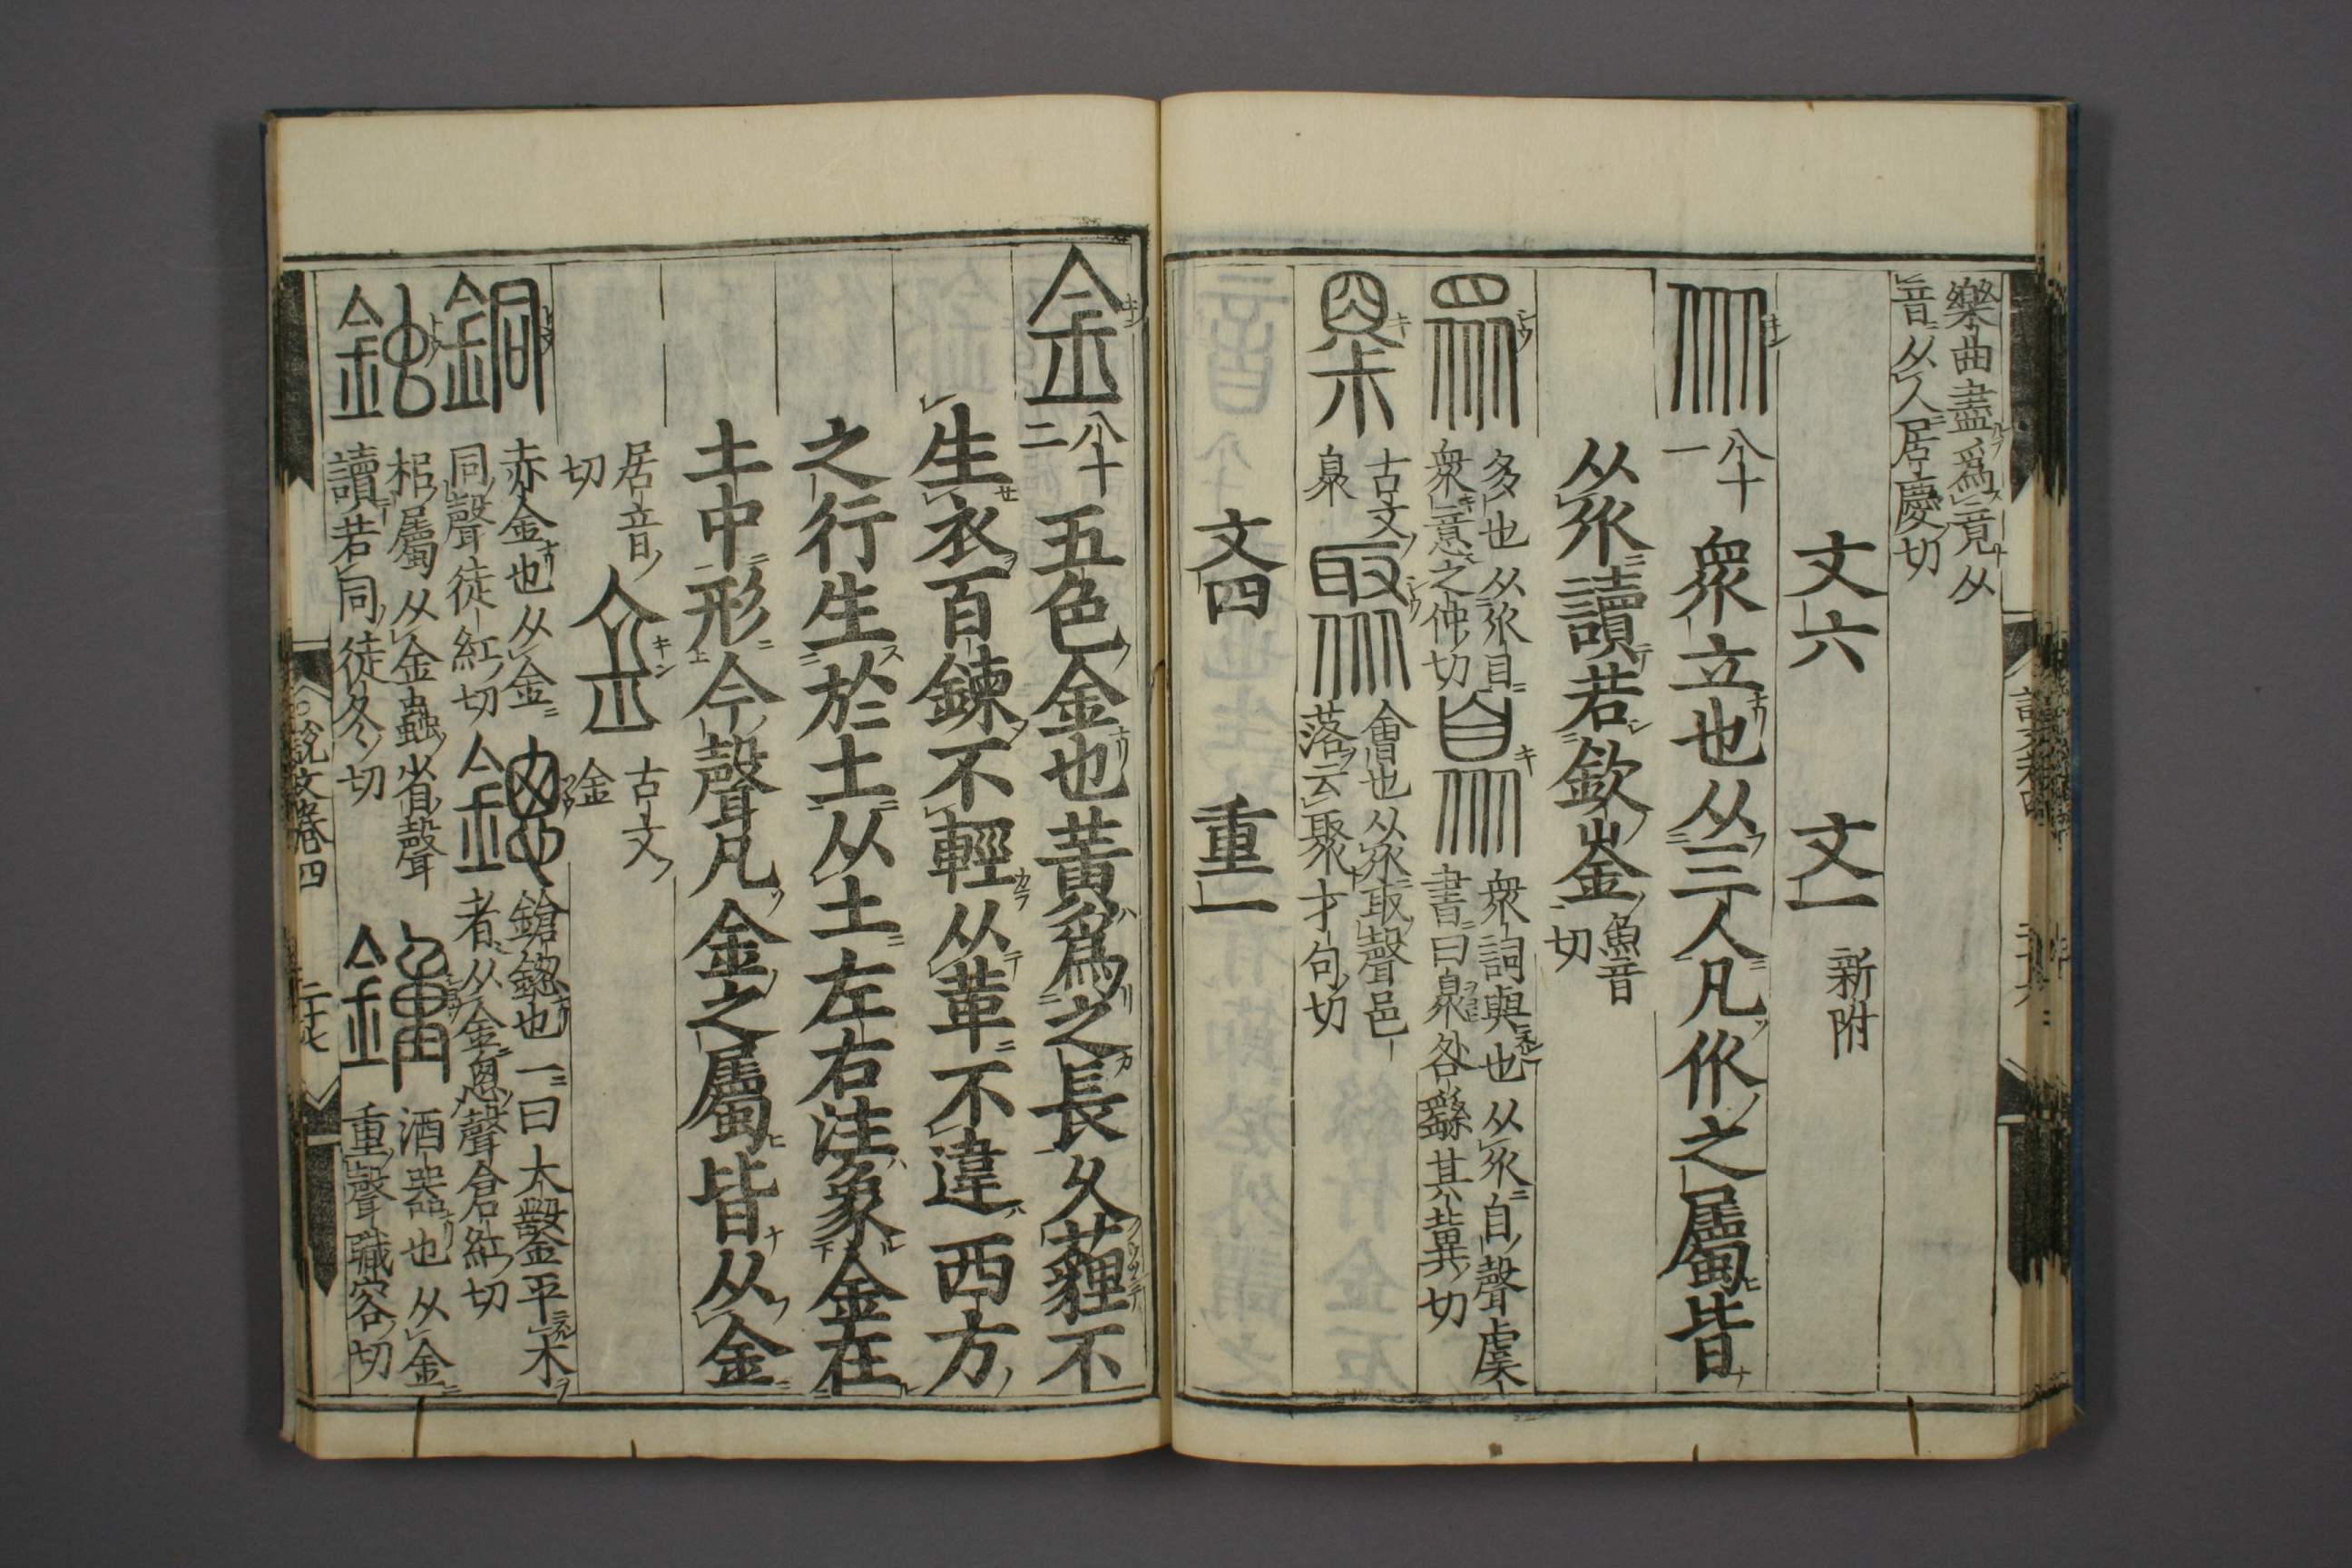 樂曲盡爲竟从
音从人居慶切
文六　文一　新附
八十一　衆立也从三人凡㐺之屬皆
从㐺讀若欽崟魚音切
多也从㐺目
衆意之仲切
衆詞與也从㐺自聲虞
書曰臮咎繇其冀切
古文
臮
會也从㐺取聲邑
落云聚才句切
文四　重一
金　八十二　五色金也黃爲之長久薶不
生衣百鍊不輕从革不違西方
之行生於土从土左右注象金在
土中形今聲凡金之屬皆从金
居音
切
古文
金
銅　赤金也从金
同聲徒紅切
鏓　鎗鏓也一曰大鑿平木
者从金悤聲倉紅切
鉵　梠屬从金蟲省聲
讀若同徒冬切
鍾　酒器也从金
重聲職容切
說文卷四　二十七